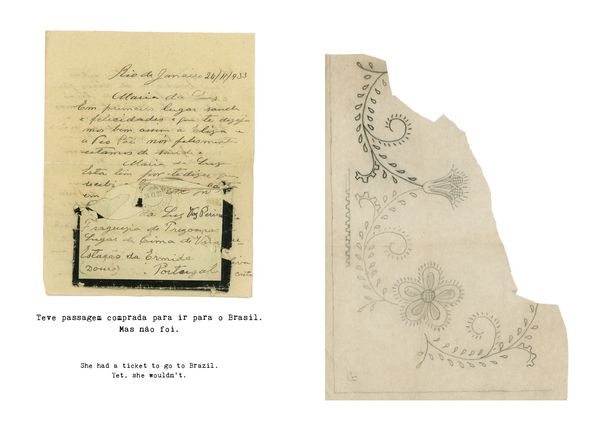 Rio de Janeiro 24/11/933
Maria da Luz
Em primeiro lugar saude
e felicidades é que te desejo
nós bem assim a Eliza e
nós felizment
estamos de saude
Maria da Luz
Esta tem por te dizer que
recebi
em
da Luz Vaz Pereira
Freguezia de Trezouras
Lugar de Cima de Vila
Estação da Ermida
Douro Portugal
Teve passagem comprada para ir para o Brasil.
Mas não foi.
She had a ticket to go to Brazil.
Yet, she wouldn't.